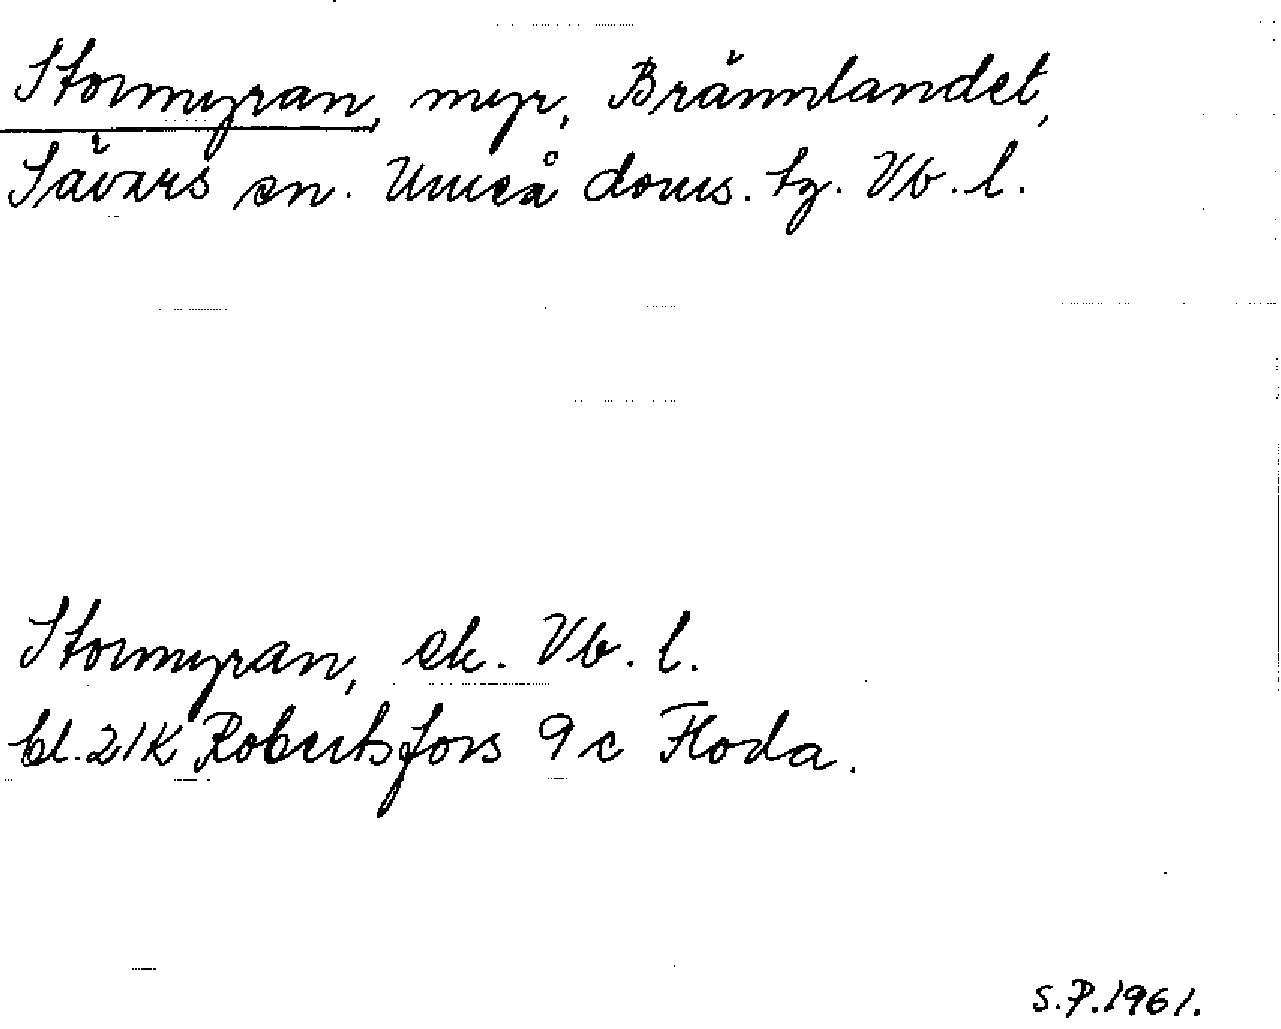 Stormyran, myr, Brännlandet,
Sävars sn. Umeå doms. tg. Vb. l.
Stormyran, ek. Vb. l.
bl. 21K Robertsfors 9 c Floda.
S.P. 1961.